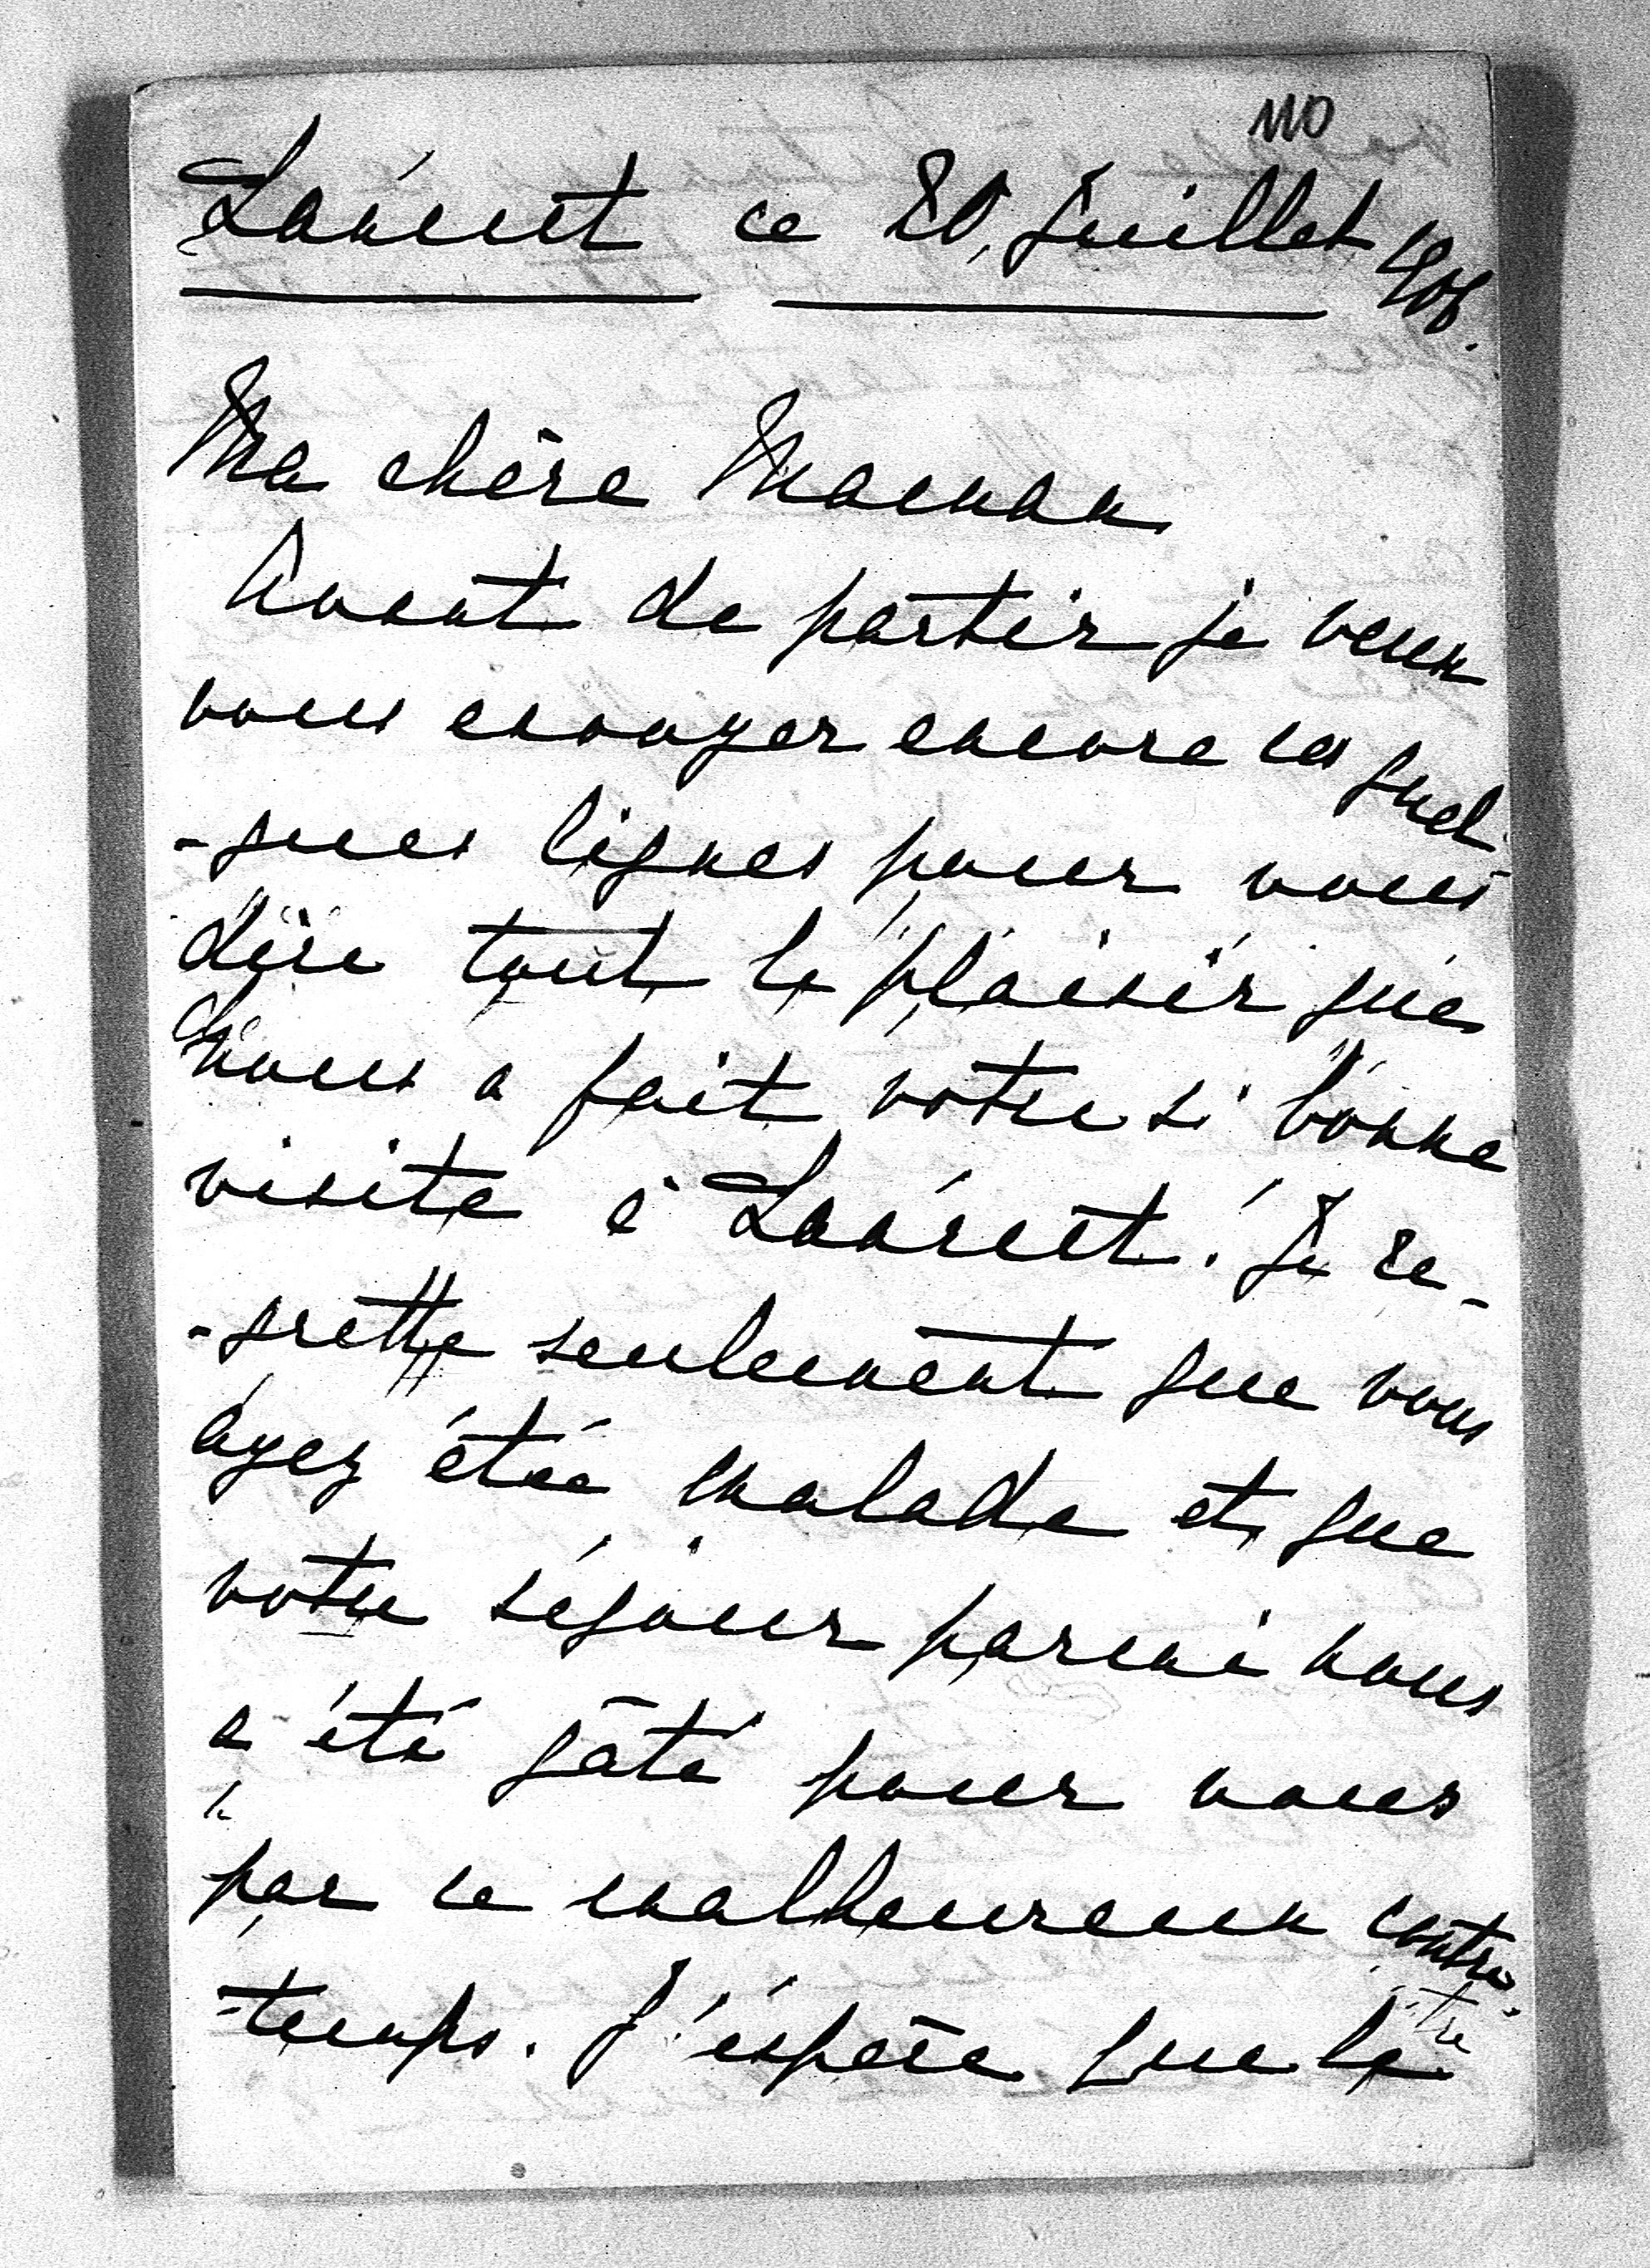 110
Laárut ce 20. Juillet 1906.
Ma chère Maman
Avant de partir je veux
vous envoyer encore ces quel-
-ques lignes pour vous
dire tout le plaisir que
nous a fait votre si bonne
visite à Laárut. Je re-
-grette seulement que vous
ayez étée malade et que
votre séjour parmi nous
a été gâté pour vous
par ce malheureux contre-
-temps. J'espère que le